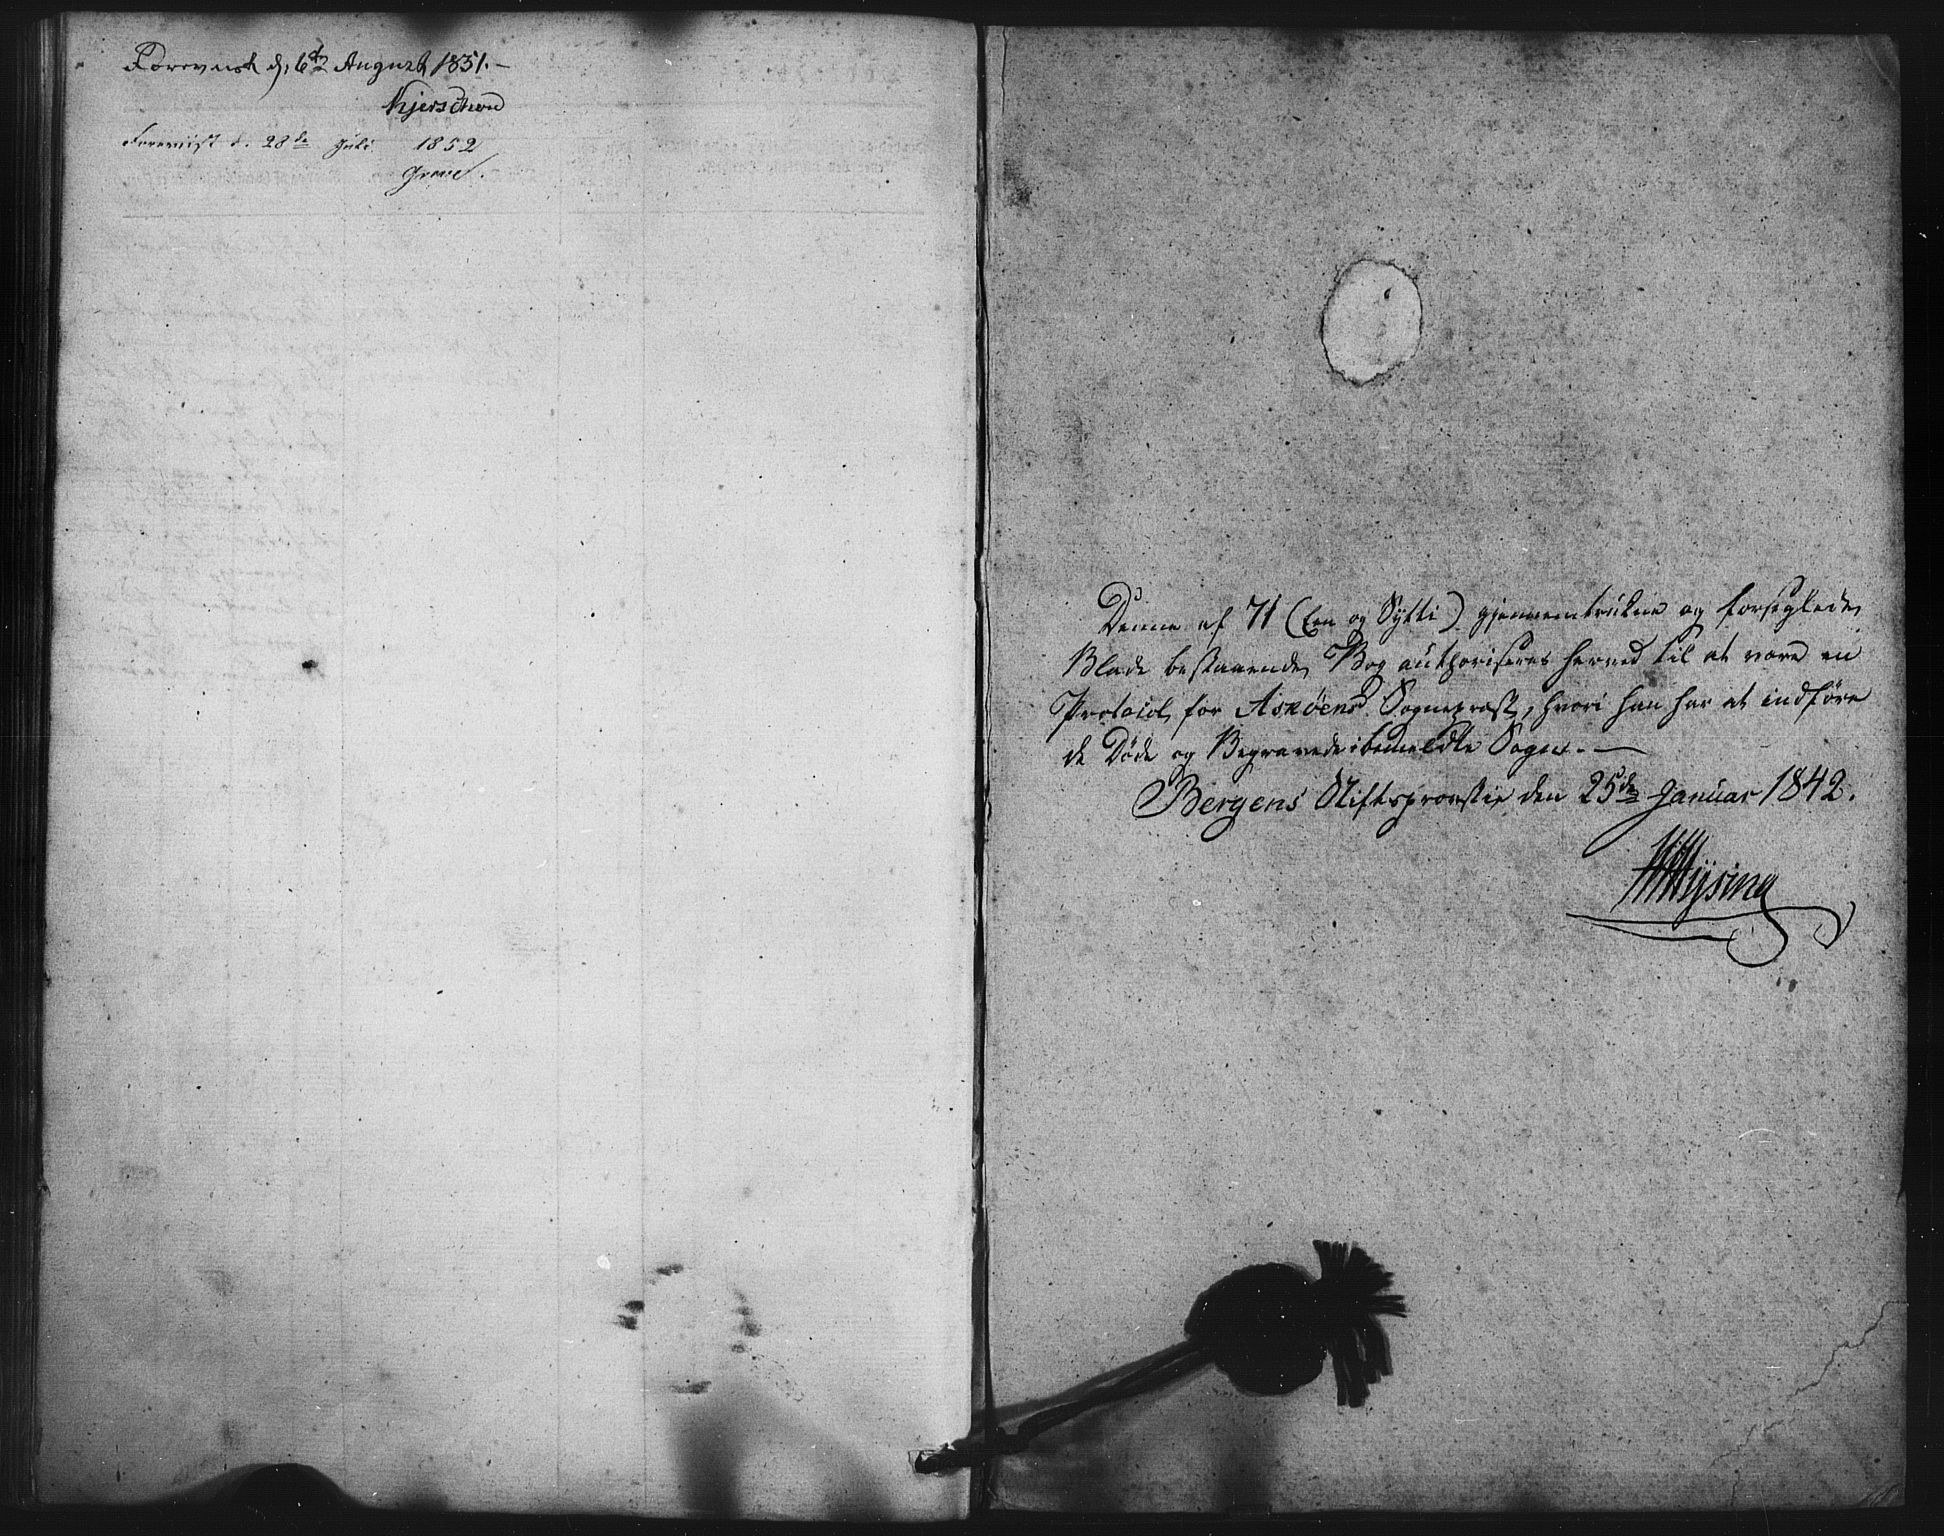 Foreviist d. 6te August 1851.-
Kjerschow
Foreviist d. 28de Juli 1852
Grove.
Denne af 71 (Een og Sytti) gjennemtrukne og forseglede
Blade bestaaende Bog authoriseres herved til at være en
Protocol for Askøens Sognepræst, hvori han har at indføre
de Døde og Begravede i bemeldte Sogn. —
Bergens Stiftsprovstie den 25de Januar 1842.
Hysing